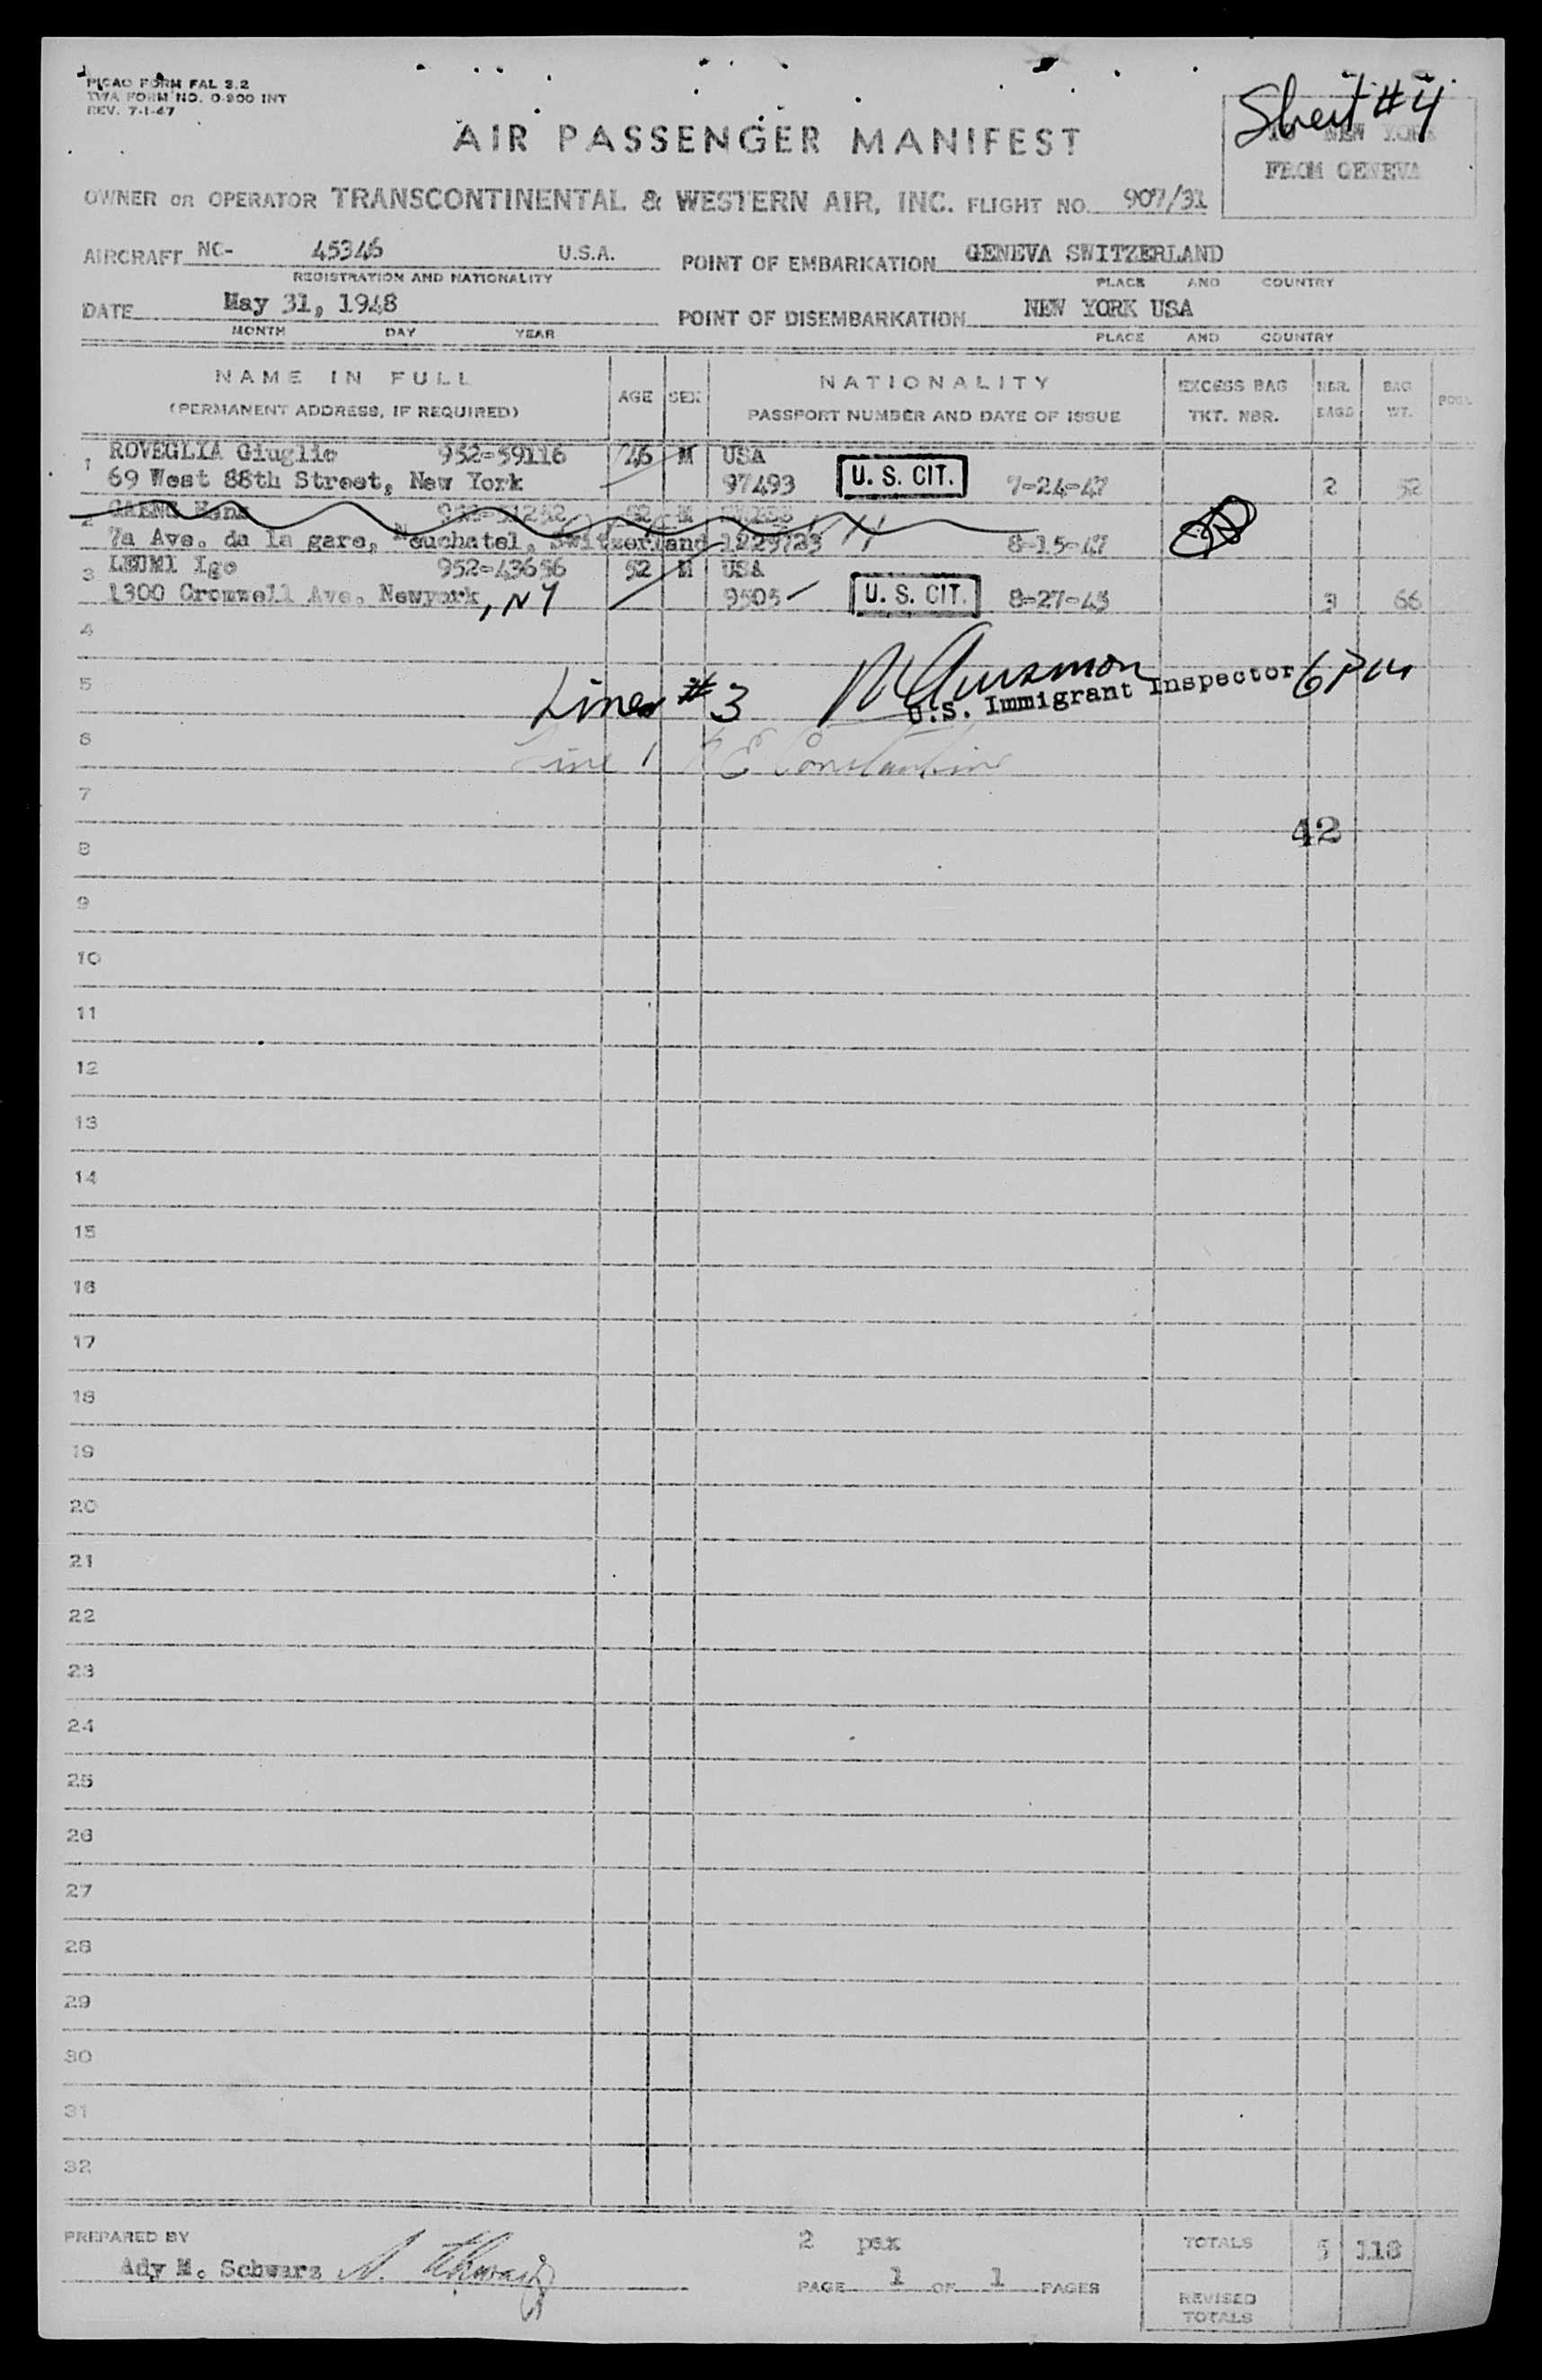 PICAO FORM FAL 3.2
TWA FORM NO. O-900 INT
REV. 7-1-47
Sheet #4
TO NEW YORK
FROM GENEVA
AIR PASSENGER MANIFEST
OWNER OR OPERATOR TRANSCONTINENTAL & WESTERN AIR, INC. FLIGHT NO. 907/31
AIRCRAFT NC- 45346 U.S.A. POINT OF EMBARKATION GENEVA SWITZERLAND
REGISTRATION AND NATIONALITY PLACE AND COUNTRY
DATE May 31, 1948 POINT OF DISEMBARKATION NEW YORK USA
MONTH DAY YEAR PLACE AND COUNTRY
NAME IN FULL AGE SEX NATIONALITY EXCESS BAG NBR. BAG POOL
(PERMANENT ADDRESS, IF REQUIRED) PASSPORT NUMBER AND DATE OF ISSUE TKT. NBR. BAGS WT.
1 ROVEGLIA Giuglio 952-59116 46 M USA
69 West 88th Street, New York 97493 U. S. CIT. 7-24-47 2 52
2 Hans 52 M SWISS
7a Ave. da la gare, Neuchatel, Switzerland 1229723 8-15-47
3 LEUMI Igo 952-43656 52 M USA
1300 Cromwell Ave. Newyork, NY 9505 U. S. CIT. 8-27-45 3 66
4
5 Lines #3 U.S. Immigrant Inspector 6 PM
6 Line 1 E Constantine
7
42
8
9
10
11
12
13
14
15
16
17
18
19
20
21
22
23
24
25
26
27
28
29
30
31
32
PREPARED BY 2 pax TOTALS 5 118
Ady M. Schwarz A. Schwarz
PAGE 1 OF 1 PAGES
REVISED
TOTALS